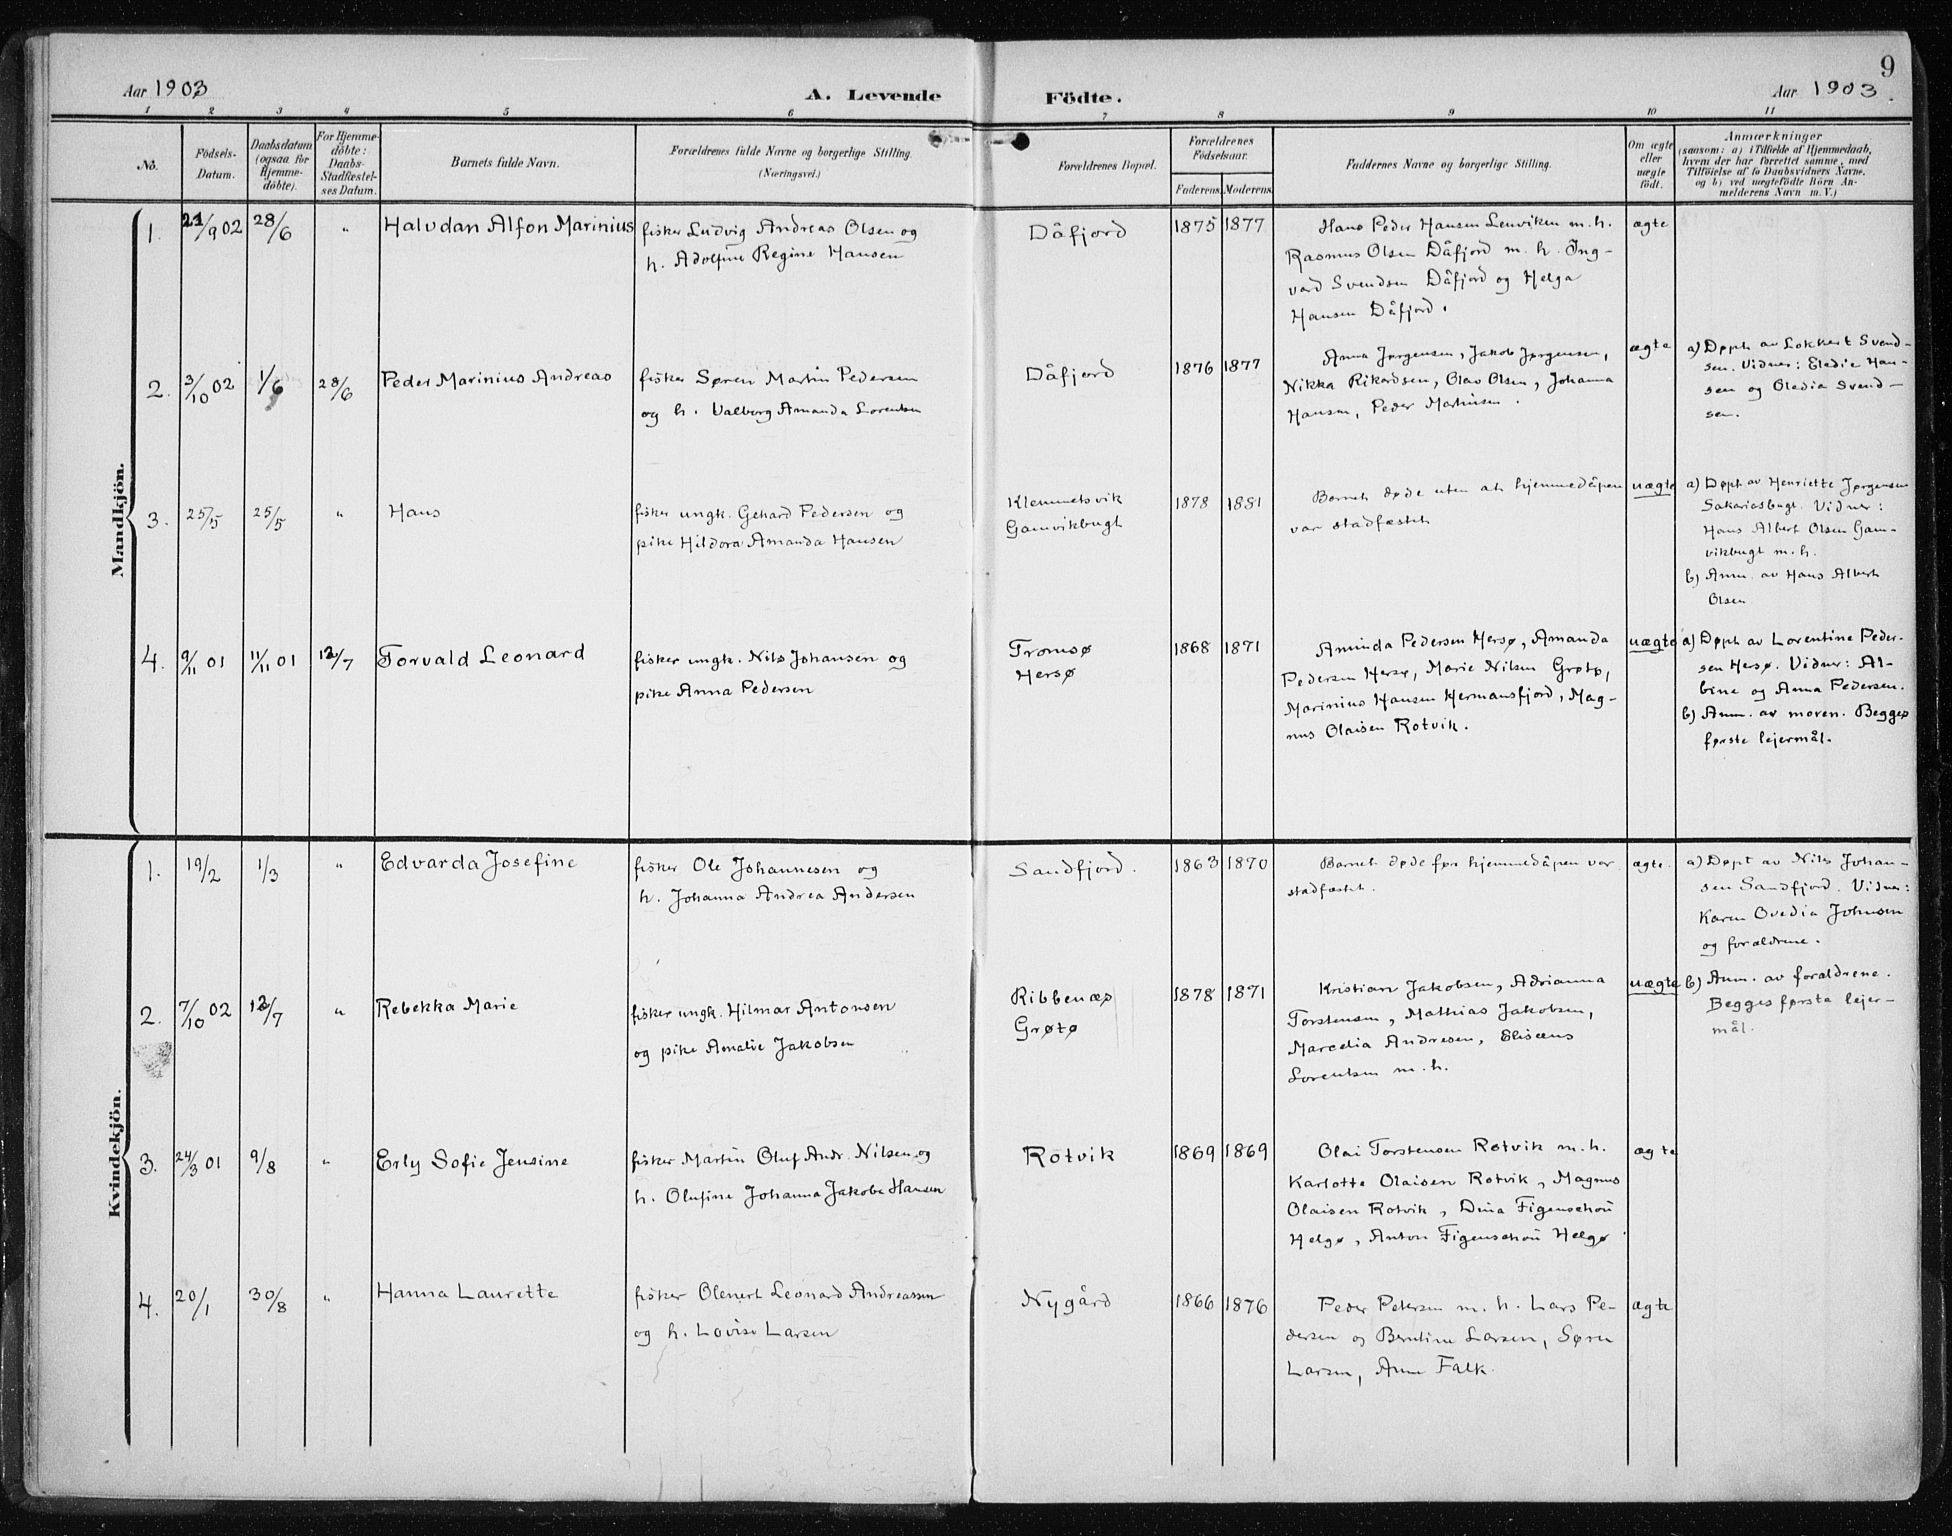 9
Aar 1903
A. Levende Födte.
Aar 1903.
1 2 3 4 5 6 7 8 9 10 11
No.
Födsels-
Datum.
Daabsdatum
(ogsaa for
Hjemme-
döbte).
For Hjemme-
döbte:
Daabs-
Stadfæstel-
ses Datum.
Barnets fulde Navn.
Forældrenes fulde Navne og borgerlige Stilling.
(Næringsvei.)
Forældrenes Bopæl.
Forældrenes
Födselsaar.
Faderens. Moderens.
Faddernes Navne og borgerlige Stilling.
Om ægte
eller
uægte
födt.
Anmærkninger
(saasom: a) i Tilfælde af Hjemmedaab,
hvem der har forrettet samme, med
Tilföielse af to Daabsvidners Navne,
og b) ved uægtefödte Börn An-
melderens Navn m. V.)
Mandkjön.
1.
21/9 02
28/6
"
Halvdan Alfon Marinius
fisker Ludvig Andreas Olsen og
h. Adolfine Regine Hansen
Dåfjord
1875
1877
Hans Peder Hansen Lenviken m. h.
Rasmus Olsen Dåfjord m. h. Ing-
vard Svendsen Dåfjord og Helga
Hansen Dåfjord.
ægte
2.
3/10 02
1/6
28/6
Peder Marinius Andreas
fisker Søren Martin Pedersen
og h. Valborg Amanda Lorentsen
Dåfjord
1876
1877
Anna Jørgensen, Jakob Jørgensen,
Nikka Rikardsen, Olav Olsen, Johanna
Hansen, Peder Martinsen.
ægte
a) Døpt av Lokkert Svend-
sen. Vidner: Eledie Han-
sen og Oledia Svend-
sen.
3.
25/5
25/5
"
Hans
fisker ungk. Gehard Pedersen og
pike Hildora Amanda Hansen
Klemmetsvik
Gamvikbugt
1878
1881
Barnet døde uten at hjemmedåpen
var stadfæstet
uægte
a) Døpt av Henriette Jørgensen
Sakariasbugt. Vidner:
Hans Albert Olsen Gam-
vikbugt m. h.
b) Anm. av Hans Albert
Olsen
4.
9/11 01
11/11 01
12/7
Torvald Leonard
fisker ungk. Nils Johansen og
pike Anna Pedersen
Tromsø
Hersø
1868
1871
Aminda Pedersen Hersø, Amanda
Pedersen Hersø, Marie Nilsen Grøtø,
Marinius Hansen Hermansfjord, Mag-
nus Olaisen Rotvik.
uægte
a) Døpt av Lorentine Peder-
sen Hersø. Vidner: Al-
bine og Anna Pedersen.
b) Anm. av moren. Begges
første lejermål.
Kvindekjön.
1.
19/2
1/3
"
Edvarda Josefine
fisker Ole Johannesen og
h. Johanna Andrea Andersen
Sandfjord.
1863
1870
Barnet døde før hjemmedåpen var
stadfæstet.
ægte.
a) Døpt av Nils Johan-
sen Sandfjord. Vidner:
Karen Ovedia Johnsen
og forældrene.
2.
7/10 02
12/7
"
Rebekka Marie
fisker ungk. Hilmar Antonsen
og pike Amalie Jakobsen
Ribbenæs
Grøtø
1878
1871
Kristian Jakobsen, Adrianna
Torstensen, Mathias Jakobsen,
Marcelia Andresen, Elisæus
Lorentsen m. h.
uægte
b) Anm. av forældrene.
Begges første lejer-
mål.
3.
24/3 01
9/8
"
Erly Sofie Jensine
fisker Martin Oluf Andr. Nilsen og
h. Olufine Johanna Jakobe Hansen
Rotvik
1869
1869
Olai Torstensen Rotvik m. h.
Karlotte Olaisen Rotvik, Magnus
Olaisen Rotvik, Dina Figenschou
Helgø, Anton Figenschou Helgø
ægte
4.
20/1
30/8
"
Hanna Laurette
fisker Olenert Leonard Andreassen
og h. Lovise Larsen
Nygård
1866
1876
Peder Petersen m. h. Lars Pe-
dersen og Berntine Larsen, Søren
Larsen, Anne Falk.
ægte